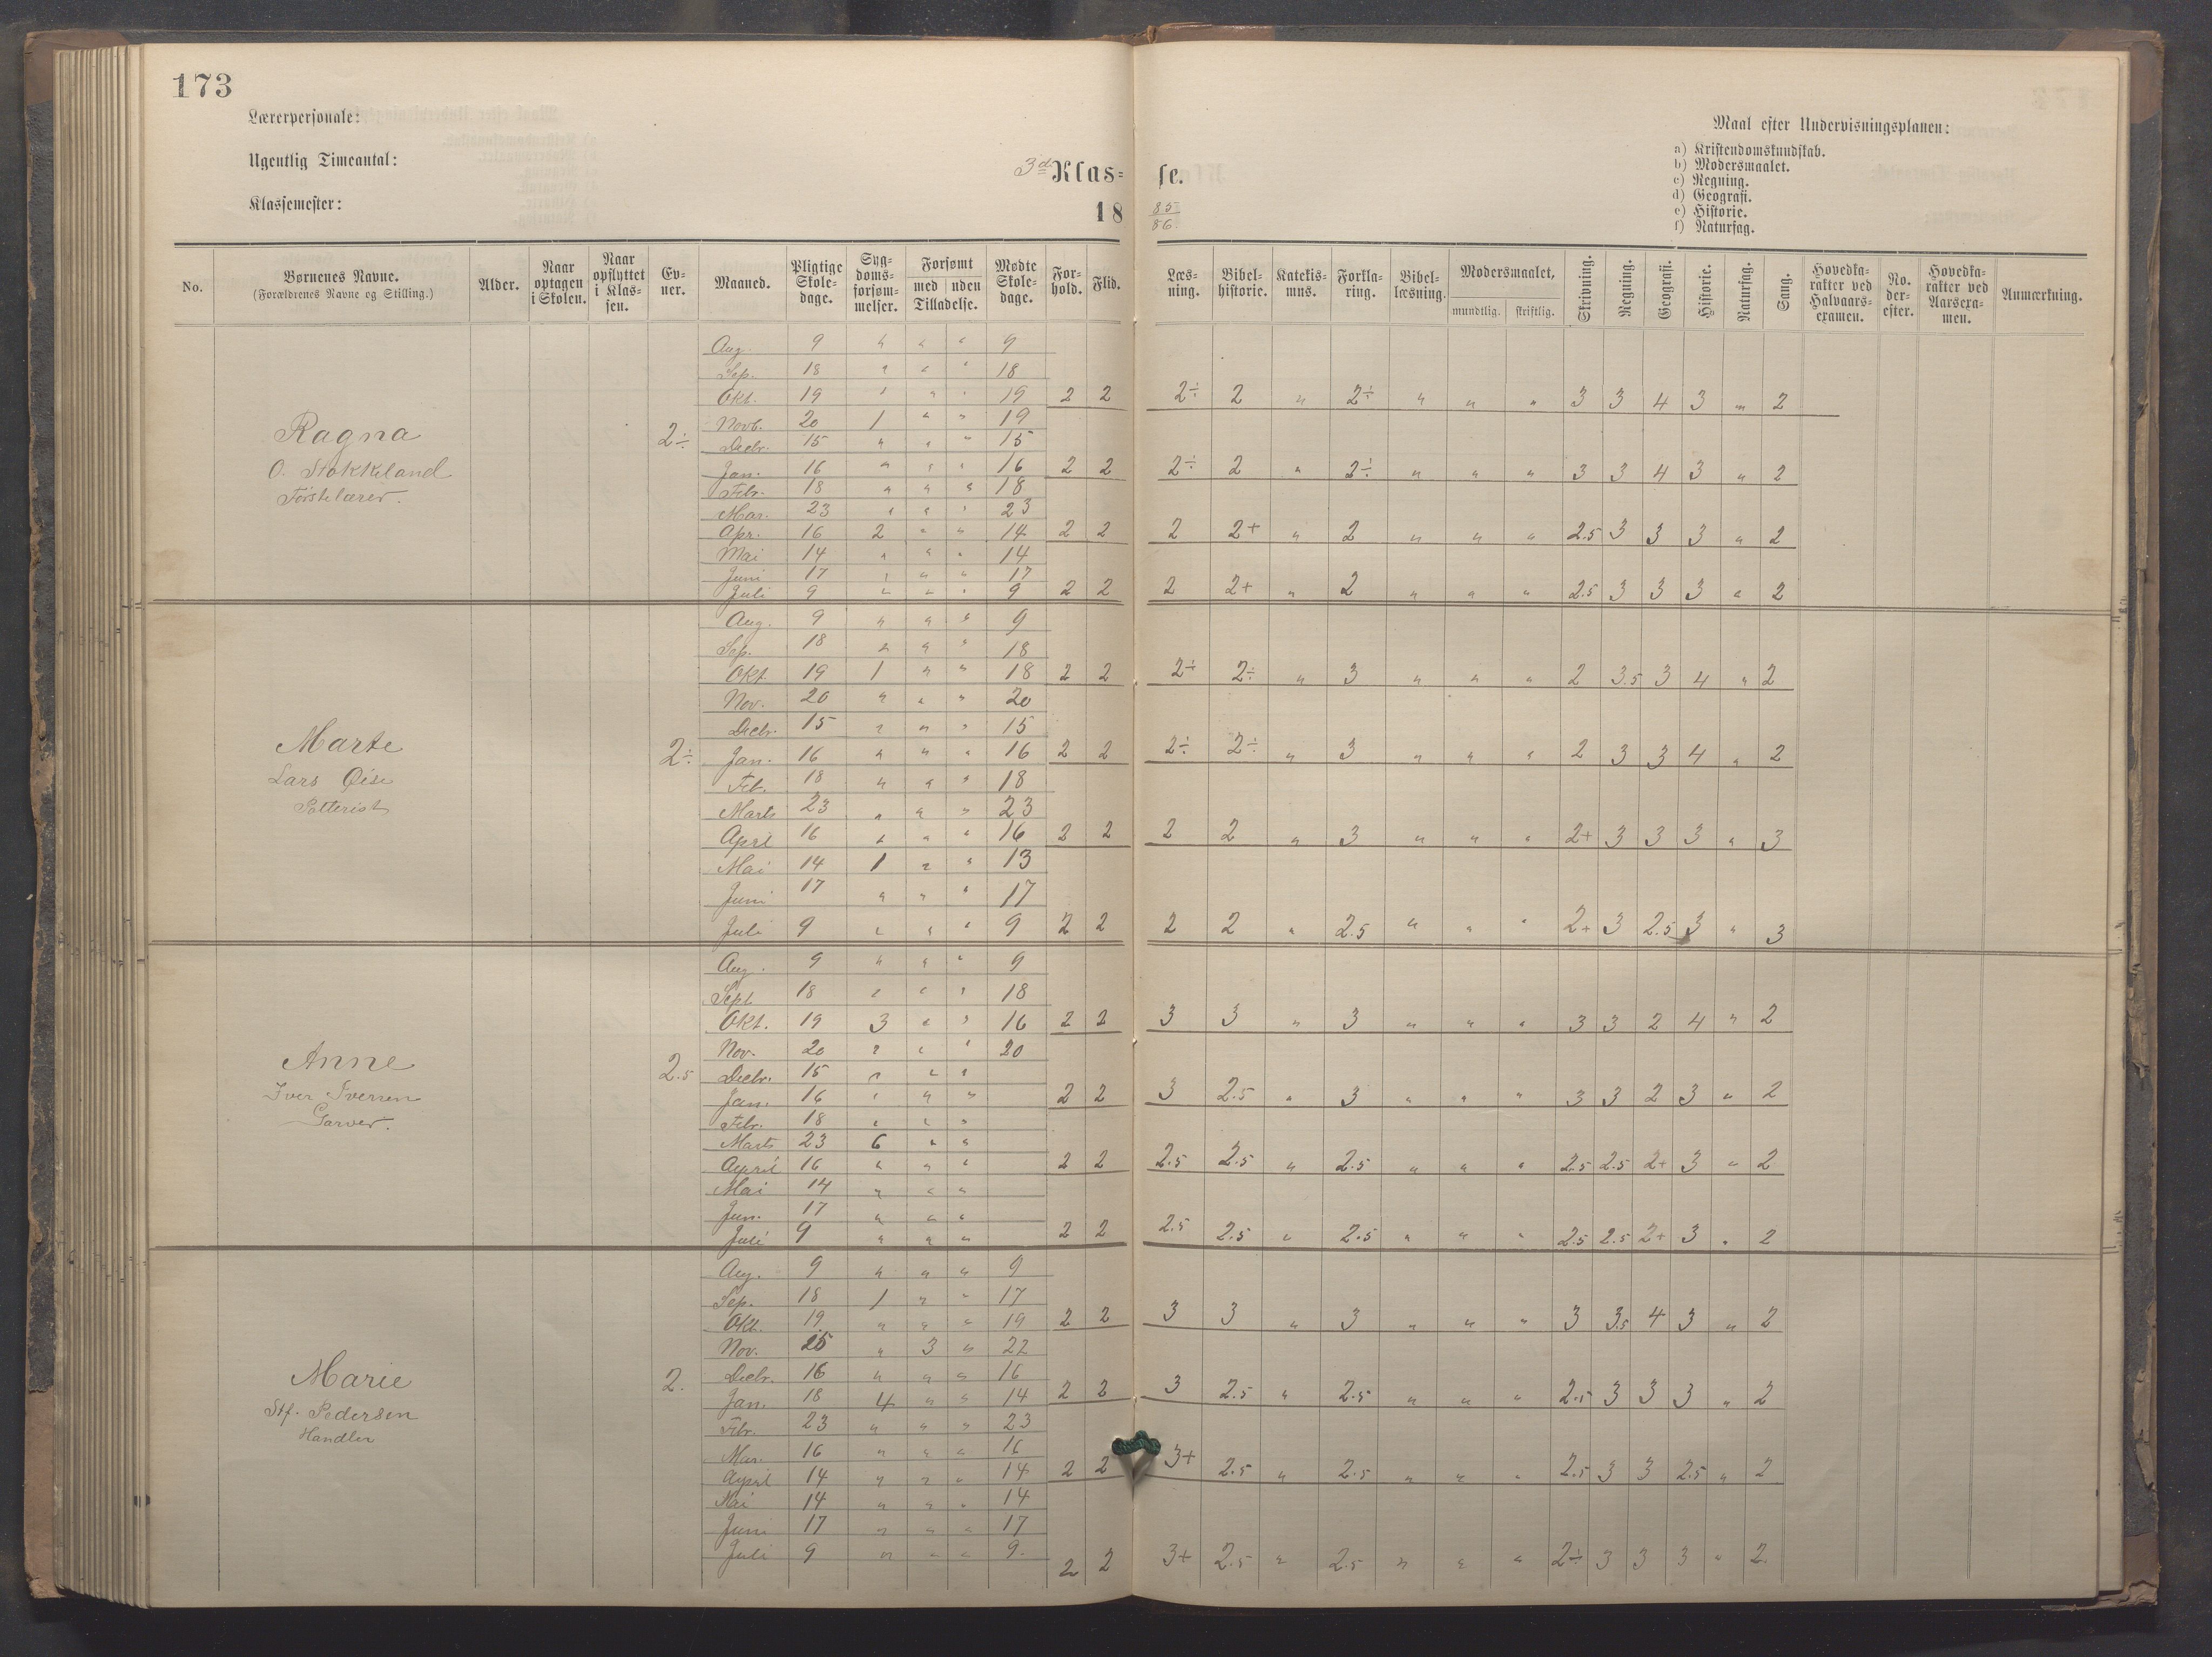 173
Lærerpersonale:
Ugentlig Timeantal:
Klassemester:
3d Klas= se.
18 85/86.
Maal efter Undervisningsplanen:
a) Kristendomskundskab.
b) Modersmaalet.
c) Regning.
d) Geografi.
e) Historie.
f) Naturfag.
No. | Børnenes Navne. (Forældrenes Navne og Stilling.) | Alder. | Naar optagen i Skolen. | Naar opflyttet i Klassen. | Evner. | Maaned. | Pligtige Skoledage. | Sygdomsforsømmelser. | Forsømt med Tilladelse. | uden Tilladelse. | Mødte Skoledage. | Forhold. | Flid. | Læsning. | Bibelhistorie. | Katekismus. | Forklaring. | Bibellæsning. | Modersmaalet, mundtlig. | skriftlig. | Skrivning. | Regning. | Geografi. | Historie. | Naturfag. | Sang. | Hovedkarakter ved Halvaarsexamen. | No. derefter. | Hovedkarakter ved Aarsexamen. | Anmærkning.
Ragna
O. Stokkeland
Førstelærer.
2÷
Aug. 9 " " " 9
Sep. 18 " " " 18
Okt. 19 " " " 19 2 2 2÷ 2 " 2÷ " " " 3 3 4 3 " 2
Novb. 20 1 " " 19
Decbr. 15 " " " 15
Jan. 16 " " " 16 2 2 2÷ 2 " 2÷ " " " 3 3 4 3 " 2
Febr. 18 " " " 18
Mar. 23 " " " 23
Apr. 16 2 " " 14 2 2 2 2+ " 2 " " " 2.5 3 3 3 " 2
Mai 14 " " " 14
Juni 17 " " " 17
Juli 9 " " " 9 2 2 2 2+ " 2 " " " 2.5 3 3 3 " 2
Marte
Lars Øise
Potterist
2÷
Aug. 9 " " " 9
Sep. 18 " " " 18
Okt 19 1 " " 18 2 2 2÷ 2÷ " 3 " " " 2 3.5 3 4 " 2
Nov. 20 " " " 20
Decbr. 15 " " " 15
Jan. 16 " " " 16 2 2 2÷ 2÷ " 3 " " " 2 3 3 4 " 2
Feb. 18 " " " 18
Marts 23 " " " 23
April 16 " " " 16 2 2 2 2 " 3 " " " 2+ 3 3 3 " 3
Mai 14 1 " " 13
Juni 17 " " " 17
Juli 9 " " " 9 2 2 2 2 " 2.5 " " " 2+ 3 2.5 3 " 3
Anne
Iver Iversen
Garver.
2.5
Aug. 9 " " " 9
Sept 18 " " " 18
Okt. 19 3 " " 16 2 2 3 3 " 3 " " " 3 3 2 4 " 2
Nov. 20 " " " 20
Decbr. 15 " " "
Jan. 16 " " " 2 2 3 2.5 " 3 " " " 3 3 2 3 " 2
Febr. 18 " " "
Marts 23 6 " "
April 16 " " " 2 2 2.5 2.5 " 2.5 " " " 2.5 2.5 2+ 3 " 2
Mai 14 " " "
Jun. 17 " " "
Juli 9 " " " 2 2 2.5 2.5 " 2.5 " " " 2.5 2.5 2+ 3 " 2
Marie
Stf. Pedersen
Handler
2.
Aug. 9 " " " 9
Sep. 18 1 " " 17
Okt. 19 " " " 19 2 2 3 3 " 3 " " " 3 3.5 4 3 " 2
Nov. 25 " 3 " 22
Decbr. 16 " " " 16
Jan. 18 4 " " 14 2 2 3 2.5 " 2.5 " " " 2.5 3 3 3 " 2
Febr. 23 " " " 23
Mar. 16 " " " 16
April 14 " " " 14 2 2 3+ 2.5 " 2.5 " " " 2.5 3 3 2.5 " 2
Mai 14 " " " 14
Juni 17 " " " 17
Juli 9 " " " 9. 2 2 3+ 2.5 " 2.5 " " " 2÷ 3 3 3 " 2.